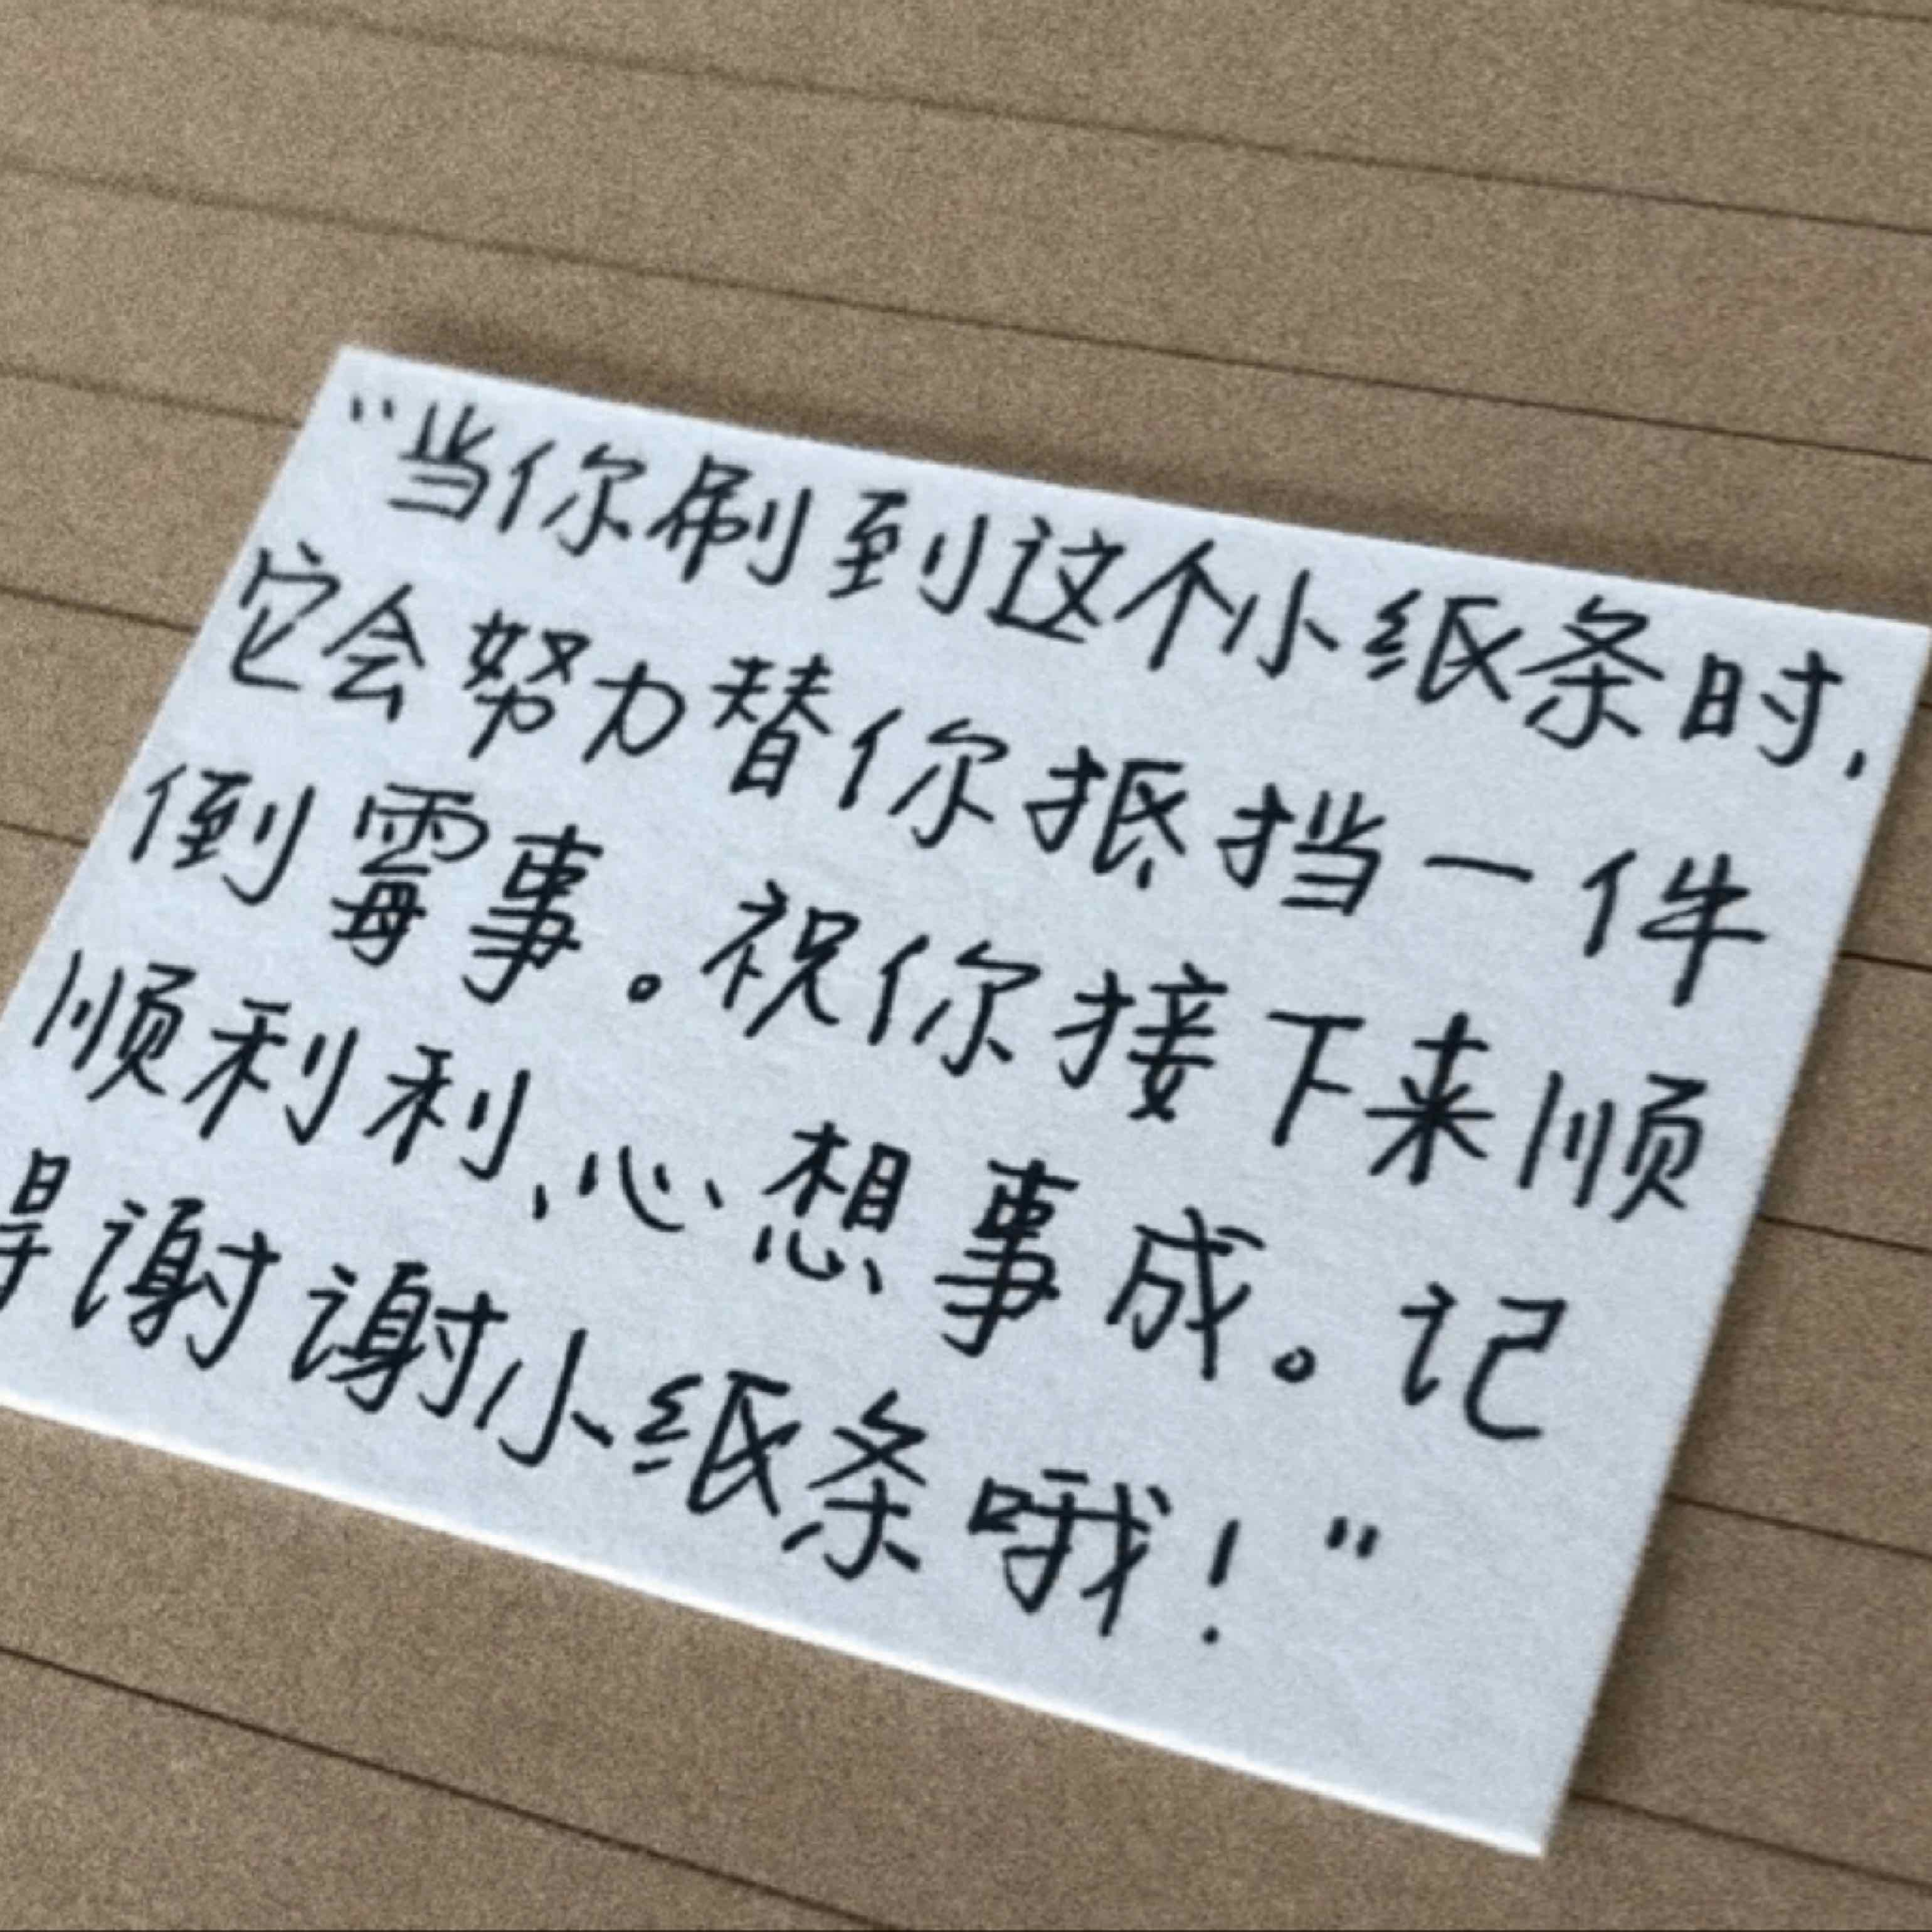 “当你刷到这个小纸条时,
它会努力替你抵挡一件
倒霉事。祝你接下来顺
顺利利、心想事成。记
得谢谢小纸条哦！”